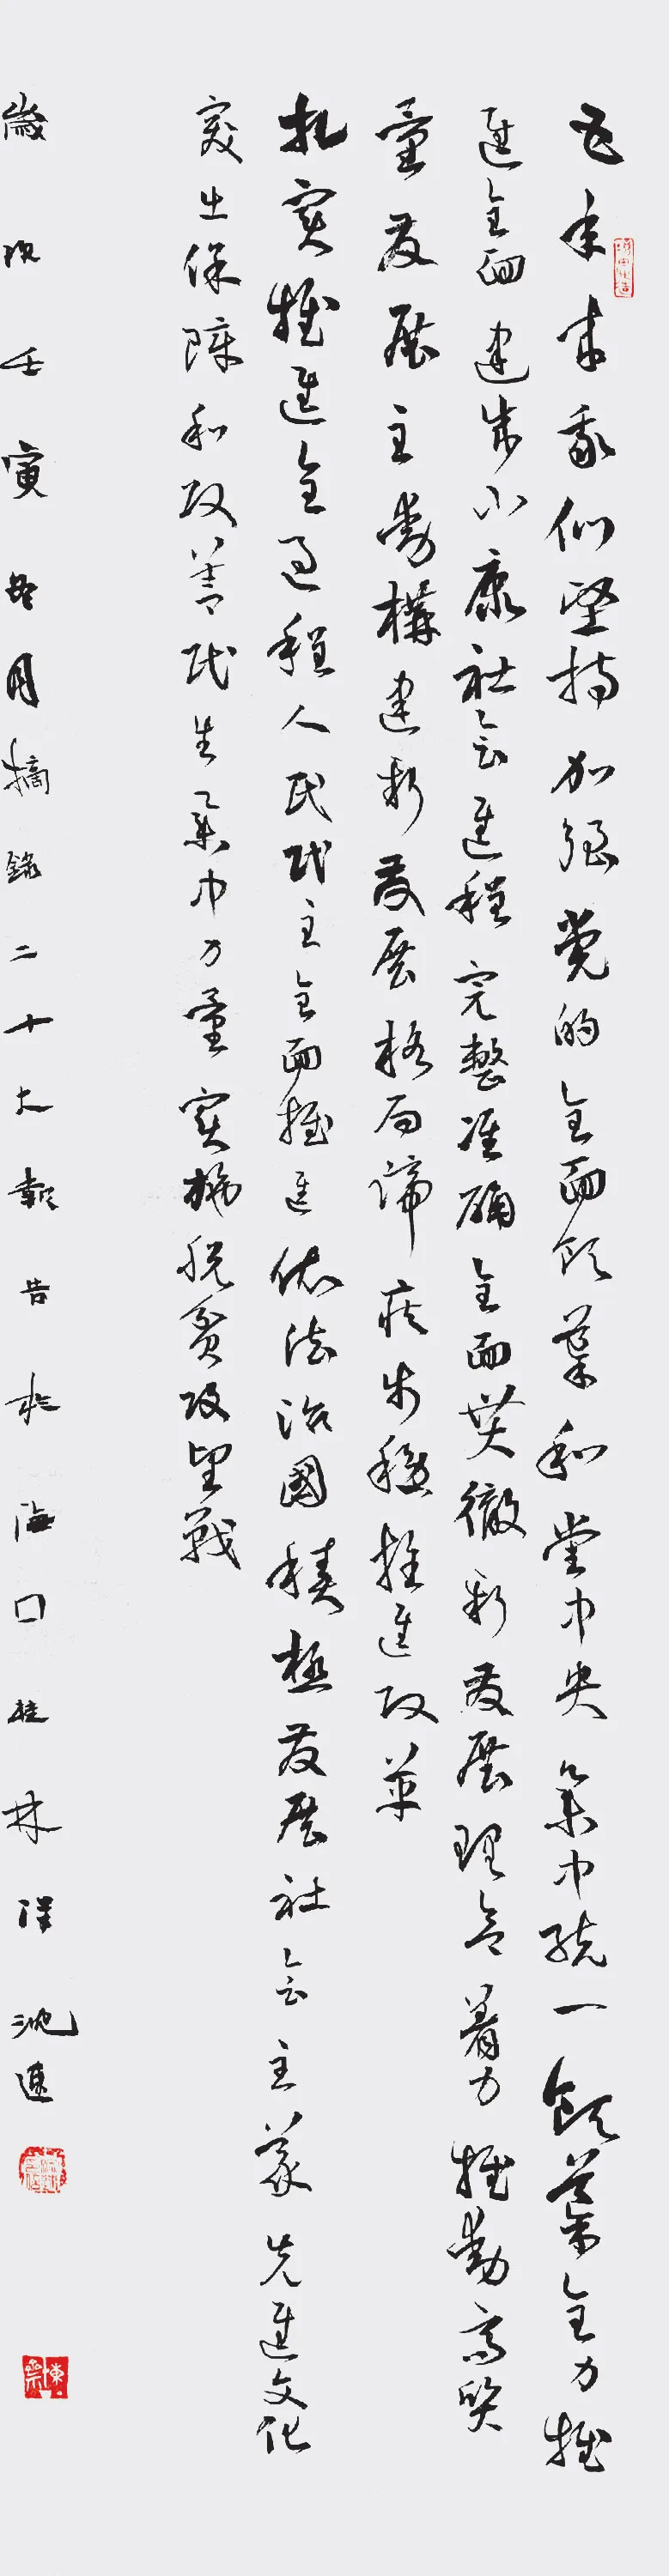 五年来我们坚持加强党的全面领导和党中央集中统一领导全力推
進全面建成小康社会進程完整准确全面贯徹新发展理念着力推动高质
量发展主动構建新发展格局蹄疾步稳推進改革
扎实推進全过程人民民主全面推進依法治國積極发展社会主义先進文化
突出保障和改善民生集中力量实施脱贫攻坚战
歲次壬寅冬月摘錄二十大報告於海口桂林洋